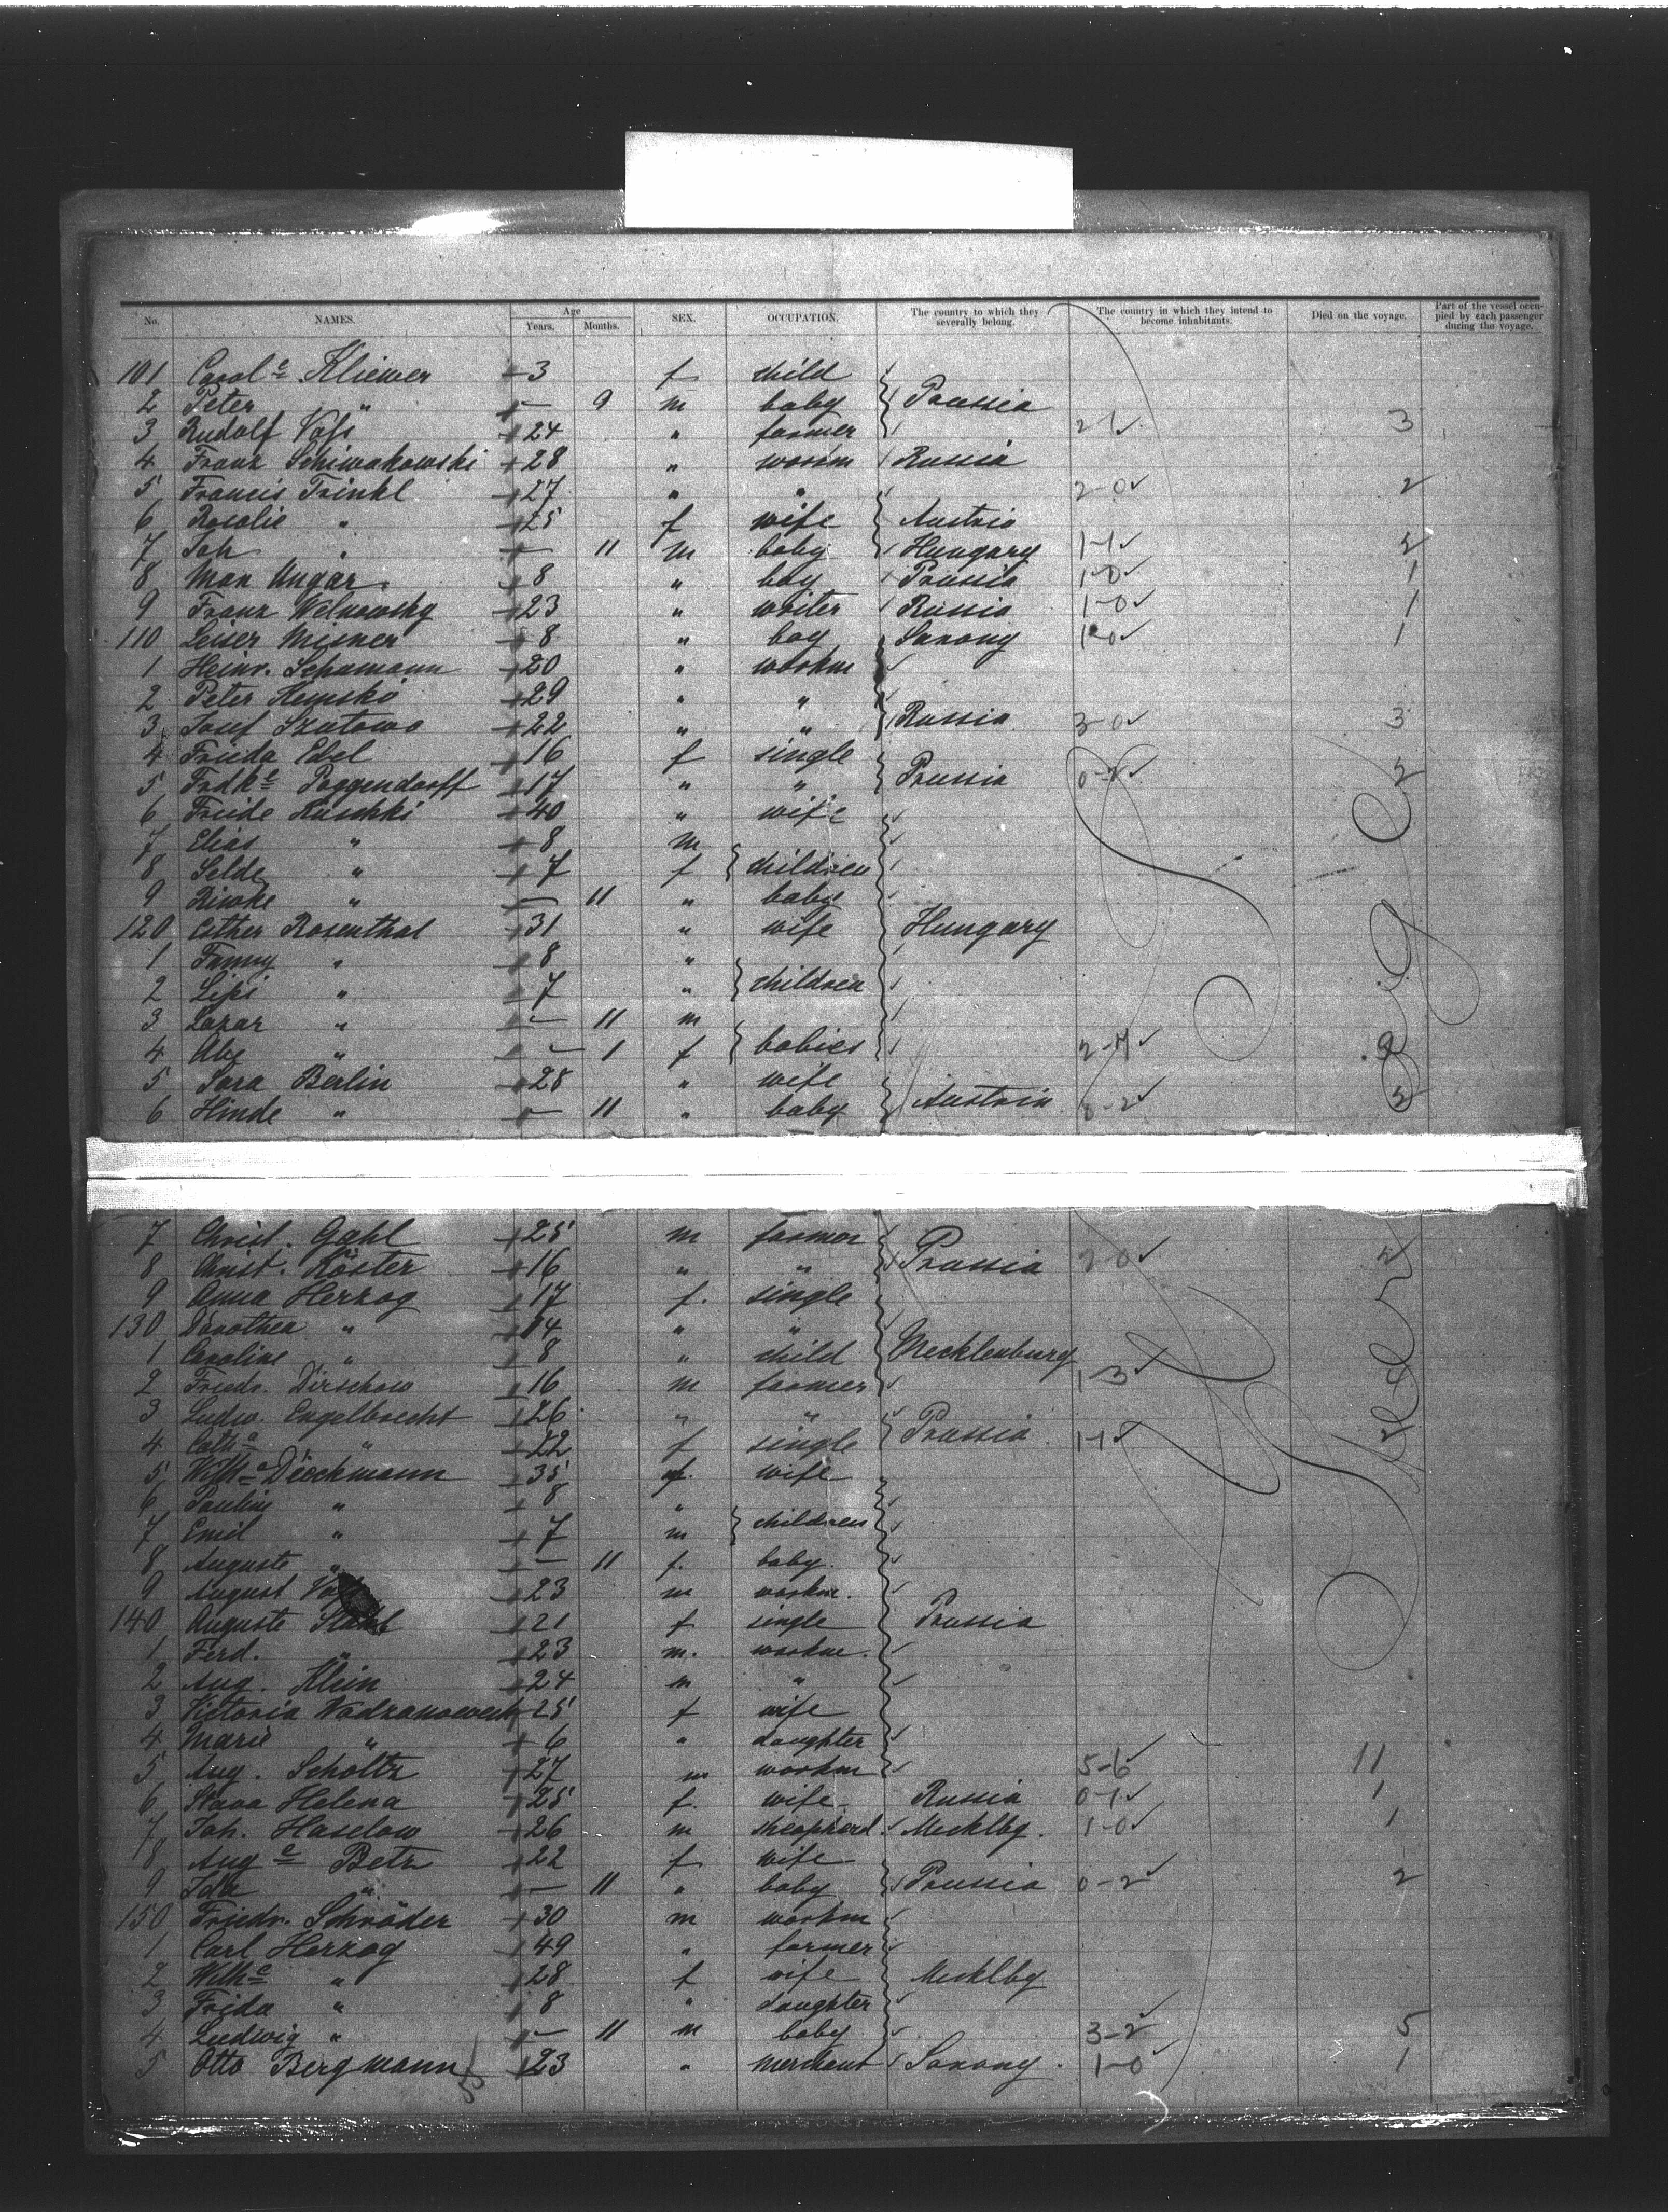 No. NAMES. Age Years. Months. SEX. OCCUPATION. The country to which they severally belong. The country in which they intend to become inhabitants. Died on the voyage. Part of the vessel occupied by each passenger during the voyage.
101 Carol e Kliewer 3 f child
2 Peter " — 9 m baby Prussia
3 Rudolf Voss 24 " farmer 2-1 3
4 Franz Schiwakowski 28 " workm Russia
5 Francis Trinkl 27 " " 2-0 2
6 Rosalie " 25 f wife Austria
7 Joh " — 11 m baby Hungary 1-1 2
8 Max Ungar 8 " boy Prussia 1-0 1
9 Franz Welnowsky 23 " writer Russia 1-0 1
110 Leiser Misner 8 " boy Saxony 1-0 1
1 Heinr. Schumann 20 " workm
2 Peter Hemsko 29 " "
3 Josef Szutowo 22 " " Russia 3-0 3
4 Frieda Ebel 16 f single
5 Frdk e Poggendorff 17 " " Prussia 0-2 2
6 Freide Ruschki 40 " wife
7 Elias " 8 m
8 Selde " 7 f children
9 Riwke " — 11 " baby
120 Esther Rosenthal 31 " wife Hungary
1 Fanny " 8 "
2 Lipi " 7 " children
3 Lazar " — 11 m
4 Abe " — 1 f babies 2-7 9
5 Sara Berlin 28 " wife
6 Hinde " — 11 " baby Austria 0-2 2
7 Christ. Gahl 25 m farmer
8 Christ. Köster 16 " " Prussia 2-0 2
9 Anna Herzog 17 f. single
130 Dorothea " 14 " "
1 Caroline " 8 " child Mecklenburg
2 Friedr. Dirschow 16 m farmer 1-3
3 Ludw. Engelbrecht 26 " "
4 Cath a " 22 f single Prussia 1-1
5 Wilh e Dieckmann 35 f. wife
6 Pauline " 8 "
7 Emil " 7 m children
8 Auguste " — 11 f. baby
9 August 23 m workm.
140 Auguste 21 f single Prussia
1 Ferd. " 23 m. workm.
2 Aug. Klein 24 m "
3 Victoria 25 f wife
4 Marie " 6 " daughter
5 Aug. Scholtz 27 m workm 5-6 11
6 Helena 25 f. wife Russia 0-1 1
7 Joh. Haselow 26 m shepherd Mecklbg. 1-0 1
8 Aug e Betz 22 f wife
9 Ida " — 11 " baby Prussia 0-2 2
150 Friedr. Schröder 30 m workm
1 Carl Herzog 49 " farmer
2 Wilh e " 28 f wife Mecklbg
3 Frida " 8 " daughter
4 Ludwig " — 11 m baby 3-2 5
5 Otto Bergmann 23 " merchant Saxony. 1-0 1